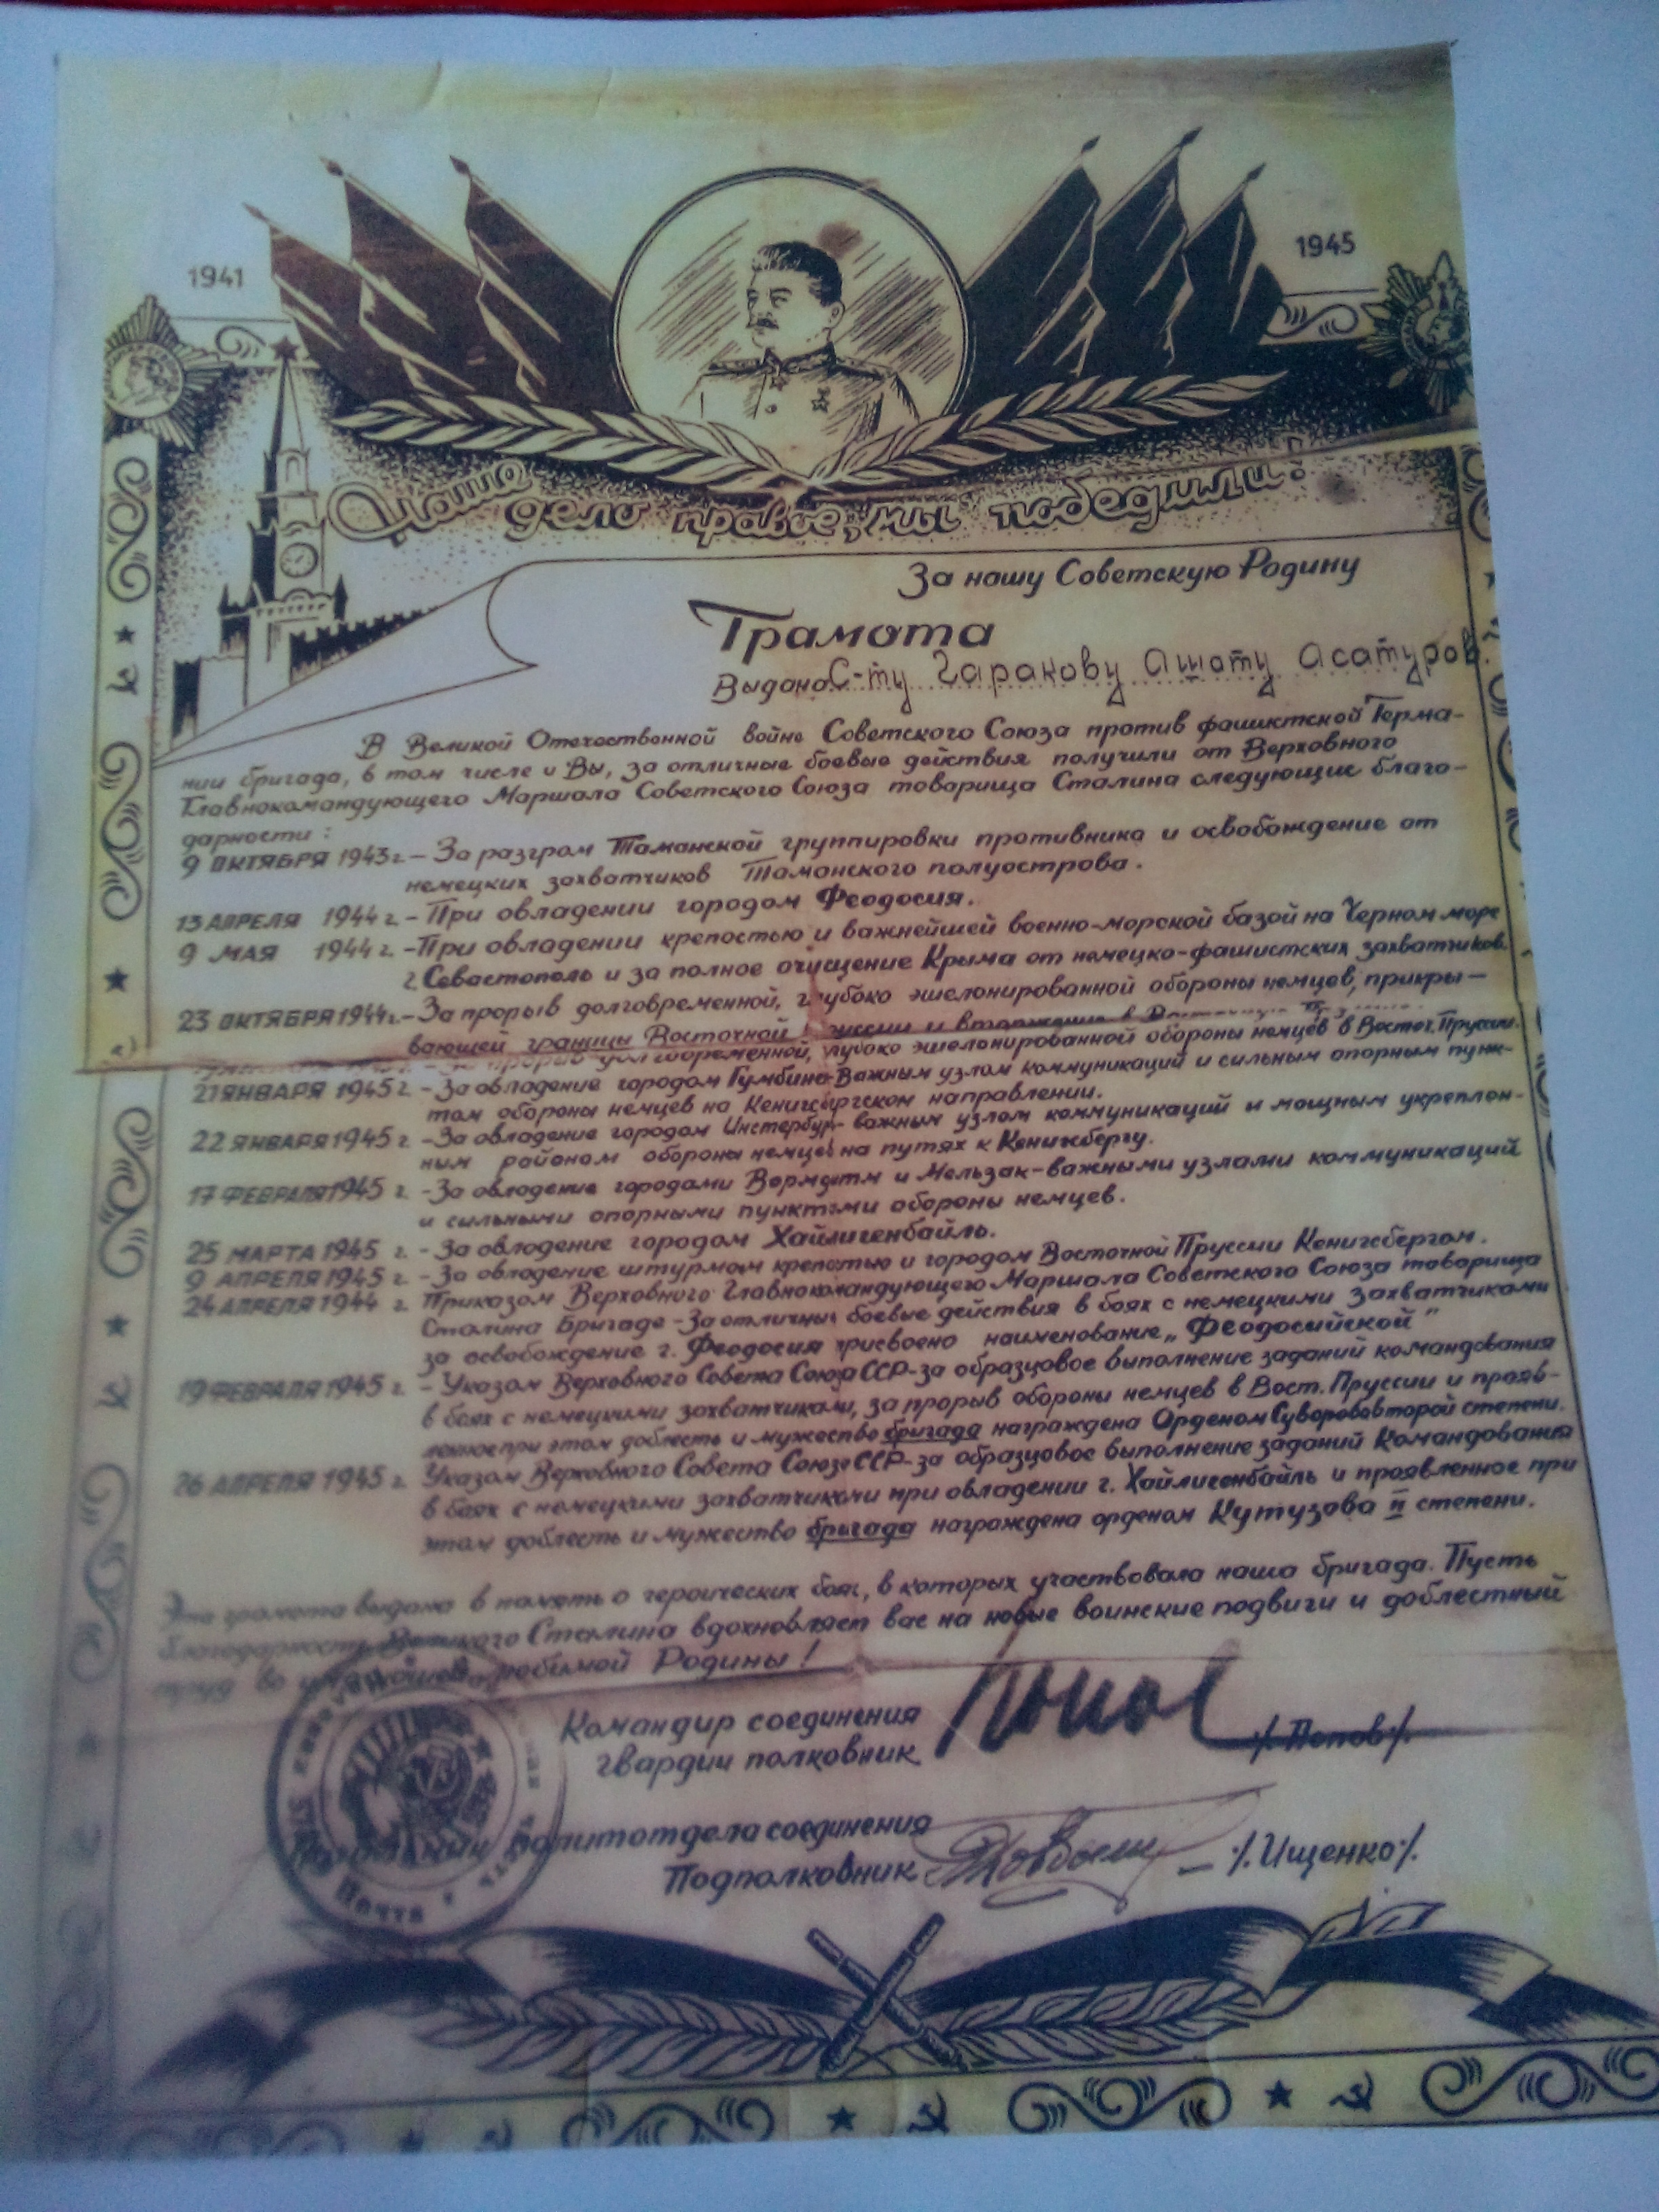 1941
1945
Наше дело правое, мы победили!
За нашу Советскую Родину
Грамота
Выдана С-ту Гаракову Ашоту Асатуров.
В Великой Отечественной войне Советского Союза против фашистской Герма-
нии бригада, в том числе и Вы, за отличные боевые действия получили от Верховного
Главнокомандующего Маршала Советского Союза товарища Сталина следующие благо-
дарности:
9 ОКТЯБРЯ 1943г. – За разгром Таманской группировки противника и освобождение от
немецких захватчиков Таманского полуострова.
13 АПРЕЛЯ 1944 г. – При овладении городом Феодосия.
9 МАЯ 1944 г. – При овладении крепостью и важнейшей военно-морской базой на Черном море
г. Севастополь и за полное очищение Крыма от немецко-фашистских захватчиков.
23 ОКТЯБРЯ 1944г. – За прорыв долговременной, глубоко эшелонированной обороны немцев, прикры-
вающей границы Восточной Пруссии и вторжение в
долговременной, глубоко эшелонированной обороны немцев в Восточ. Пруссии.
21 ЯНВАРЯ 1945 г. – За овладение городом Гумбинен-Важным узлом коммуникаций и сильным опорным пунк-
том обороны немцев на Кенигсбергском направлении.
22 ЯНВАРЯ 1945 г. – За овладение городом Инстербург- важным узлом коммуникаций и мощным укреплен-
ным районом обороны немцев на путях к Кенигсбергу.
17 ФЕВРАЛЯ 1945 г. – За овладение городами Вормдитм и Мельзак-важными узлами коммуникаций
и сильными опорными пунктами обороны немцев.
25 МАРТА 1945 г. – За овладение городом Хайлигенбайль.
9 АПРЕЛЯ 1945 г. – За овладение штурмом крепостью и городом Восточной Пруссии Кенигсбергом.
24 АПРЕЛЯ 1944 г. Приказом Верховного Главнокомандующего Маршала Советского Союза товарища
Сталина Бригаде – За отличные боевые действия в боях с немецкими захватчиками
за освобождение г. Феодосия присвоено наименование „Феодосийской"
19 ФЕВРАЛЯ 1945 г. – Указом Верховного Совета Союза ССР-за образцовое выполнение заданий командования
в боях с немецкими захватчиками, за прорыв обороны немцев в Вост. Пруссии и прояв-
ленное при этом доблесть и мужество бригада награждена Орденом Суворова второй степени.
26 АПРЕЛЯ 1945 г. Указом Верховного Совета Союза ССР-за образцовое выполнение заданий Командования
в боях с немецкими захватчиками при овладении г. Хайлигенбайль и проявленное при
этом доблесть и мужество бригада награждена орденом Кутузова II степени.
Эта грамота выдана в память о героических боях, в которых участвовала наша бригада. Пусть
благодарность Великого Сталина вдохновляет вас на новые воинские подвиги и доблестный
труд во любимой Родины!
Командир соединения
гвардии полковник /Попов/.
политотдела соединения
Подполковник — /Ищенко/.
Почта